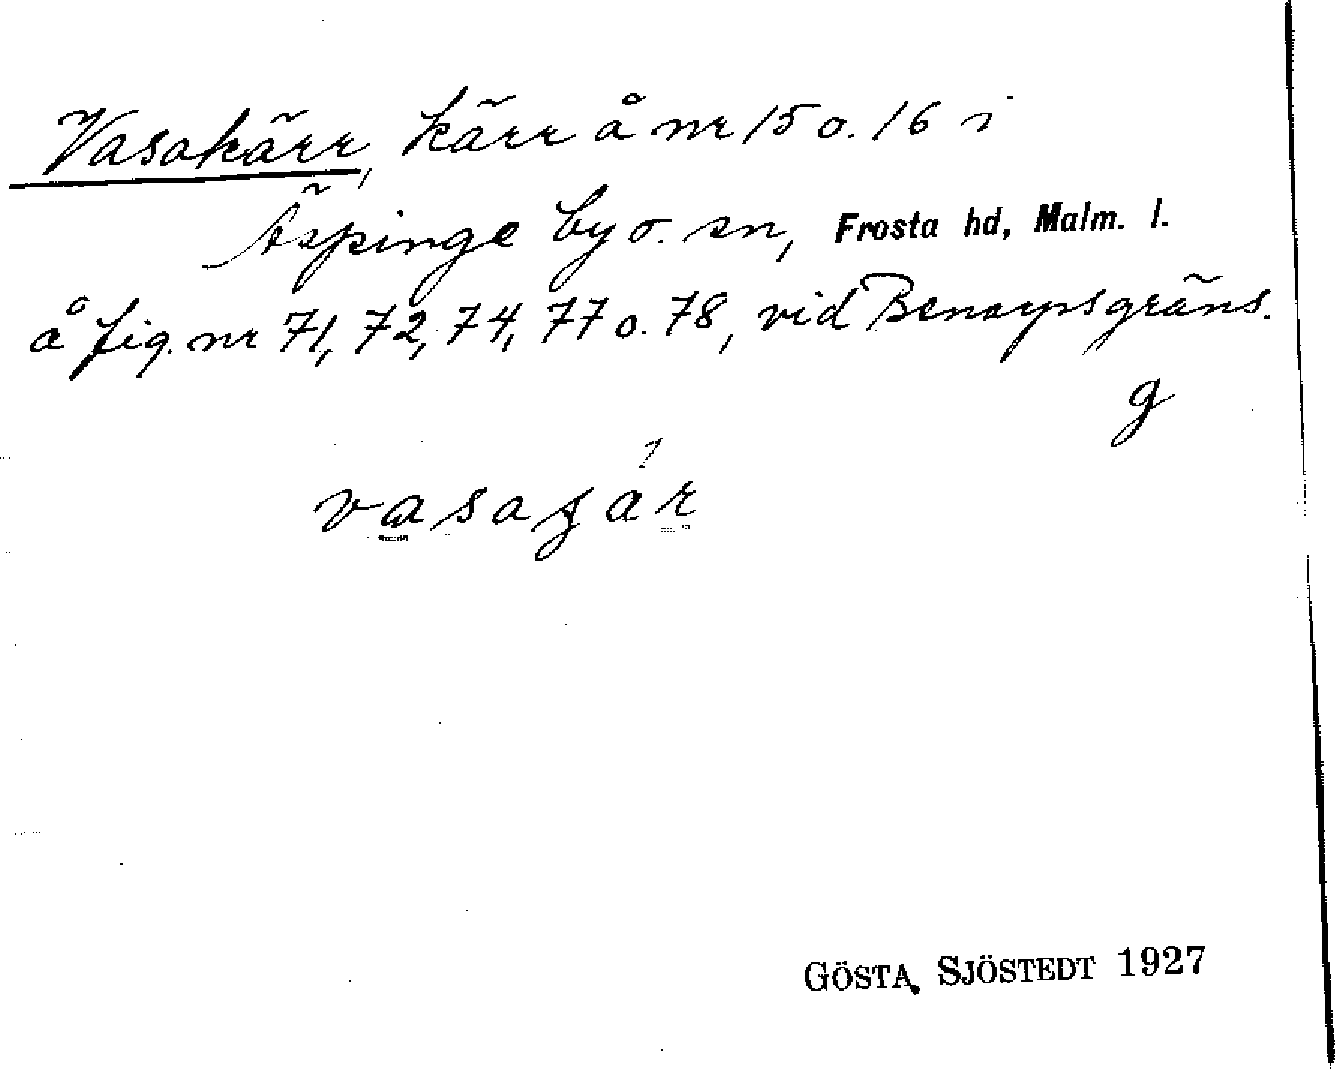 Vasakärr, kärr å nr 15 o. 16 i
Äspinge by o. sn, Frosta hd, Malm. l.
å fig. nr 71, 72, 74, 77 o. 78, vid Benarps gräns.
g
GÖSTA SJÖSTEDT 1927